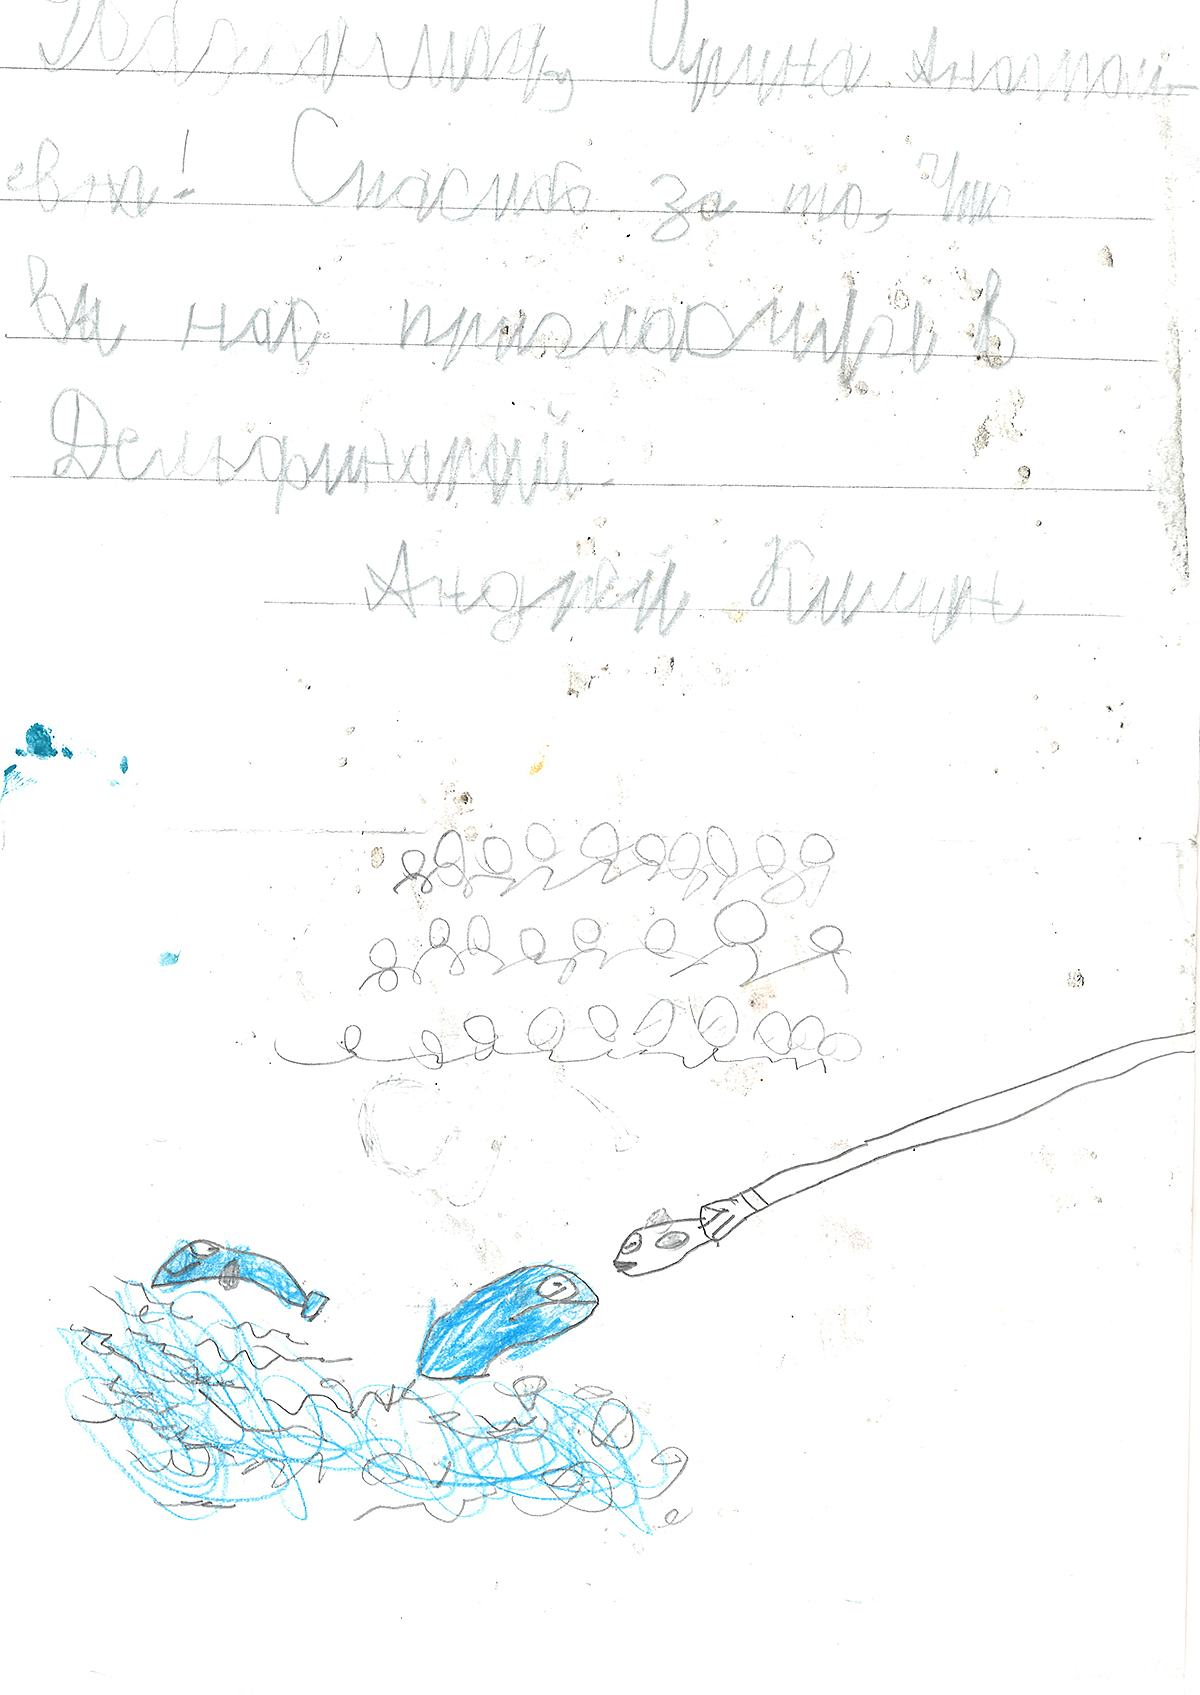 Ирина Анатоль-
евна! Спасибо за то, что
вы нас пригласили в
Дельфинарий.
Андрей